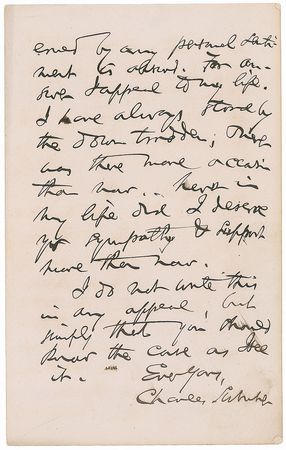 erned by any personal senti-
ment is absurd. For an-
swer I appeal to my life.
I have always stood by
the down trodden; never
was there more occasion
than now... never in
my life did I deserve
yr sympathy & support
more than now.
I do not write this
in any appeal, but
simply that you should
know the case as I see
it.
Ever Yours,
Charles Sumner